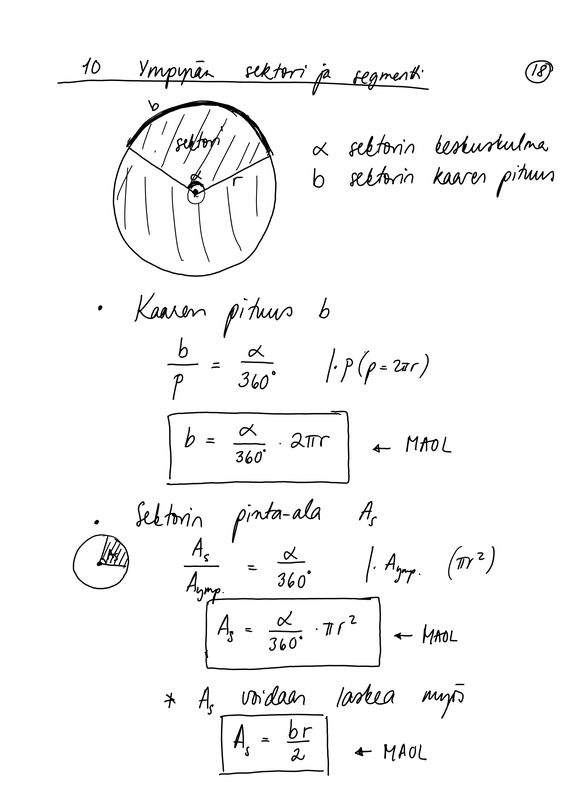 10 Ympyrän sektori ja segmentti
18
b
sektori
α
r
α sektorin keskuskulma
b sektorin kaaren pituus
• Kaaren pituus b
b/p = α/360° |·p (p = 2πr)
b = α/360° · 2πr ← MAOL
• Sektorin pinta-ala Aₛ
As
Aₛ/Aymp. = α/360° |· Aymp. (πr²)
Aₛ = α/360° · πr² ← MAOL
* Aₛ voidaan laskea myös
Aₛ = br/2 ← MAOL